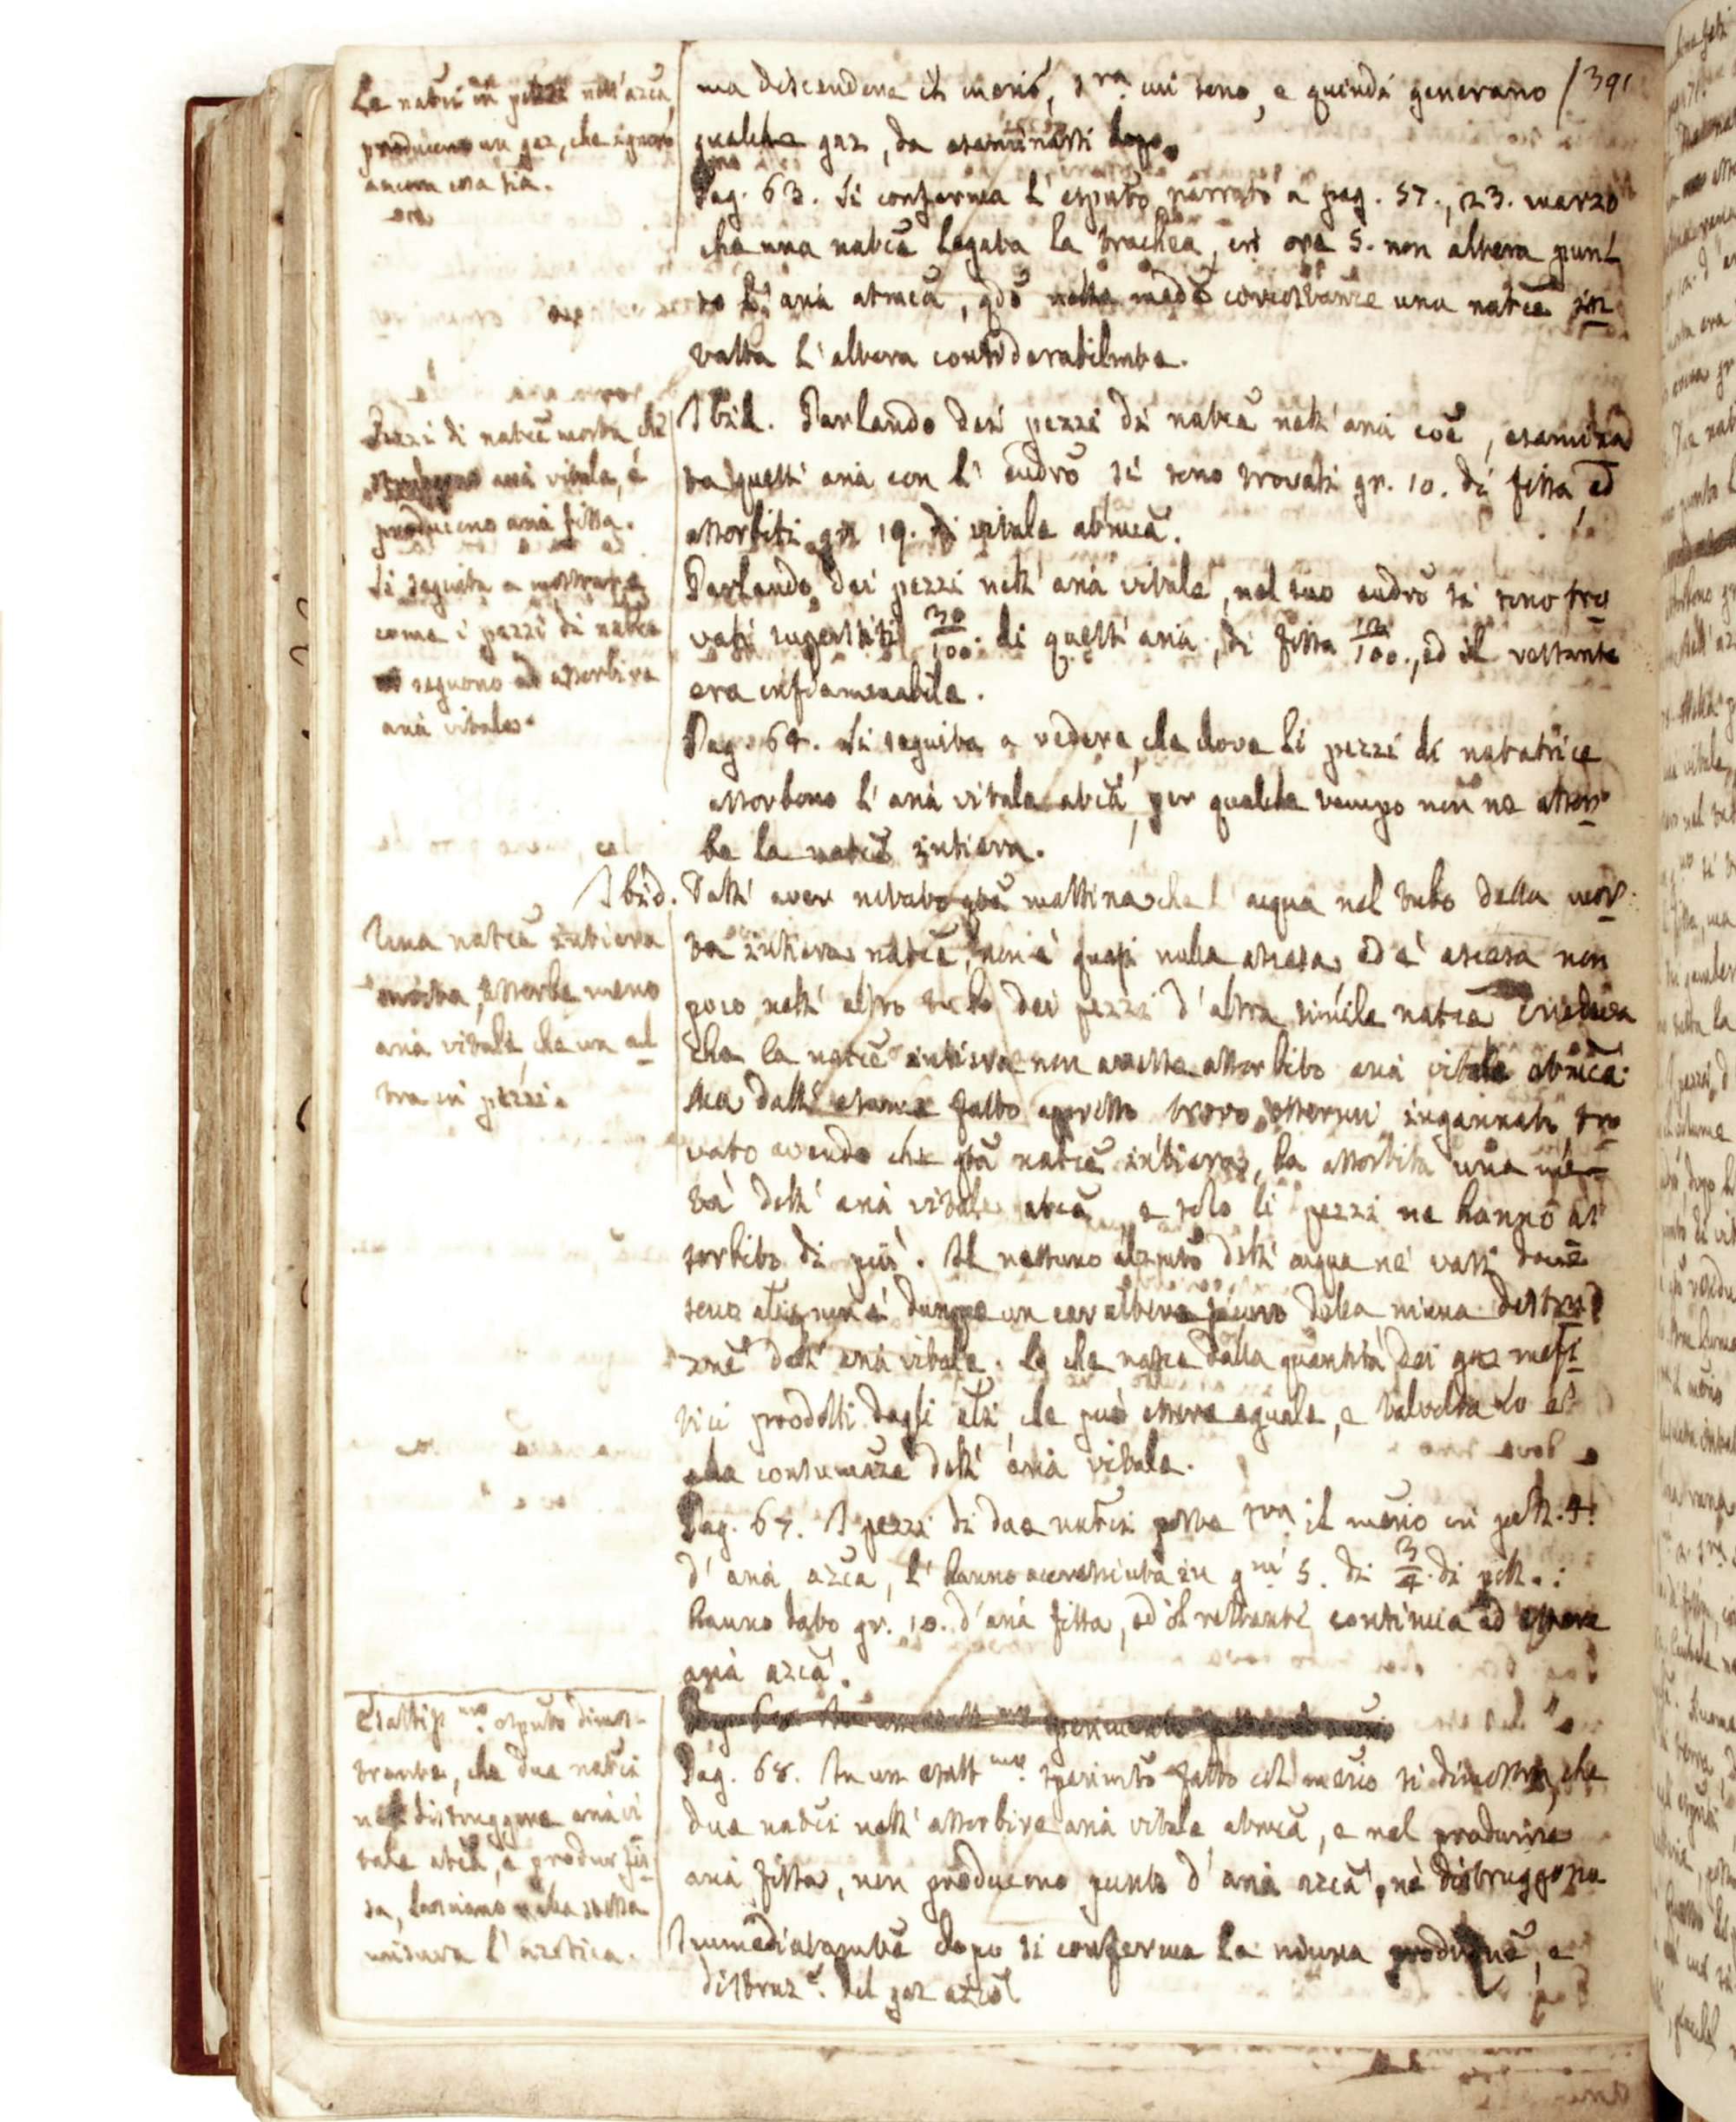 391
Le natrici in pezzi nell'azca,
producono un gaz, che ignoro
ancora cosa sia.
ma discendere il merió, sra. cui sono, e quindi generano
qualche gaz, da esaminarsi dopo.
Pag. 63. Si conferma l'esputo narrato a pag. 57., 23. marzo
che una natcẽ legata la trachea, in ore 5. non altera pun
to l'aria atmcã, qdõ nelle medẽ circostanze una natcẽ in
tatta l'altera considerabilmte.
Pezzi di natcẽ morta che
aria vitale, e
producono aria fissa.
Si seguita a mostrare
come i pezzi di natce
seguono ad assorbire
aria vitale.
Ibid. Parlando dei pezzi di natcẽ nell'aria coẽ, esamina
ta quest'aria con l'eudrõ si sono trovati gr. 10. di fissa, ed
assorbiti gr. 19. di vitale atmcã.
Parlando dei pezzi nell'aria vitale, nel suo eudrõ si sono tro
vati superstiti 30/100. di quest'aria, di fissa /100., ed il restante
era infiammabile.
Pag. 64. Si seguita a vedere, che dove li pezzi di natatrice
assorbono l'aria vitale atcã, per qualche tempo non ne assor
be la natcẽ intiera.
Una natcẽ intiera
morta, assorbe meno
aria vitale, che un al
tra in pezzi.
Ibid. Dall'aver notato qtã mattina che l'acqua nel tubo della mor
ta intiera natcẽ, non è quasi nulla ascesa, ed è ascesa non
poco nell'altro tubo dei pezzi d'altra simile natcẽ
che la natcẽ intiera non avesse assorbito aria vitale atmcã.
Ma dall'esame fatto appresso trovo essermi ingannato, tro
vato avendo che qtã natcẽ intiera, ha assorbita una me
tà dell'aria vitale atcã, e solo li pezzi ne hanno as
sorbito di più. Il nessuno alzmtõ dell'acqua ne' vasi dove
sono alĩ, non è dunque un carattere sicuro della niuna distru
znẽ dell'aria vitale. Lo che nasce dalla quantità dei gaz mefi
tici prodotti dagli alĩ, che può essere eguale, e talvolta lo è
alla consumaze dell'aria vitale.
Pag. 67. I pezzi di due natcĩ posti sra. il merió in poll. 4.
d'aria azcã, l'hanno accresciuta in gni 5. di 3/4. di poll.:
hanno dato gr. 10. d'aria fissa, ed il restante continua ad essere
aria azcã.
Esattismo. esputo dimos-
trante, che due natcĩ
nel distruggere aria vi
tale atcã, e produr fis
sa, lasciano nella stessa
misura l'azotica.
Pag. 68. In un esattmo. sperimtõ fatto col merió si dimostra, che
due natcĩ nell'assorbire aria vitale atmcã, e nel produrre
aria fissa, non producono punto d'aria azcã, nè distruggono
Immediatamtẽ dopo si conferma la niuna produznẽ, e
distruz. del gaz azcõ